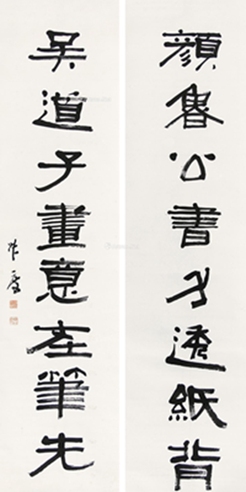 顔魯公書力透紙背
吴道子畫意在筆先